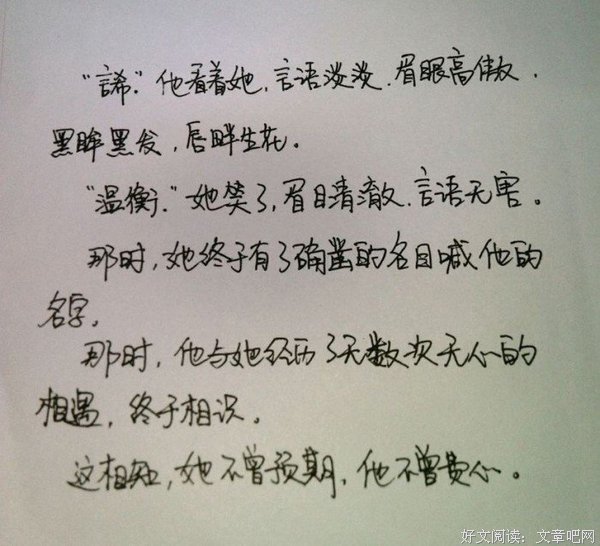 “諦。”他看着她，言语淡淡，眉眼高傲，
黑眸黑发，唇畔生花。
“温衡。”她笑了，眉目清澈，言语无害。
那时，她终于有了确凿的名目喊他的
名字。
那时，他与她经历了无数次无心的
相遇，终于相识。
这相知，她不曾预期，他不曾费心。
好文阅读：文章吧网